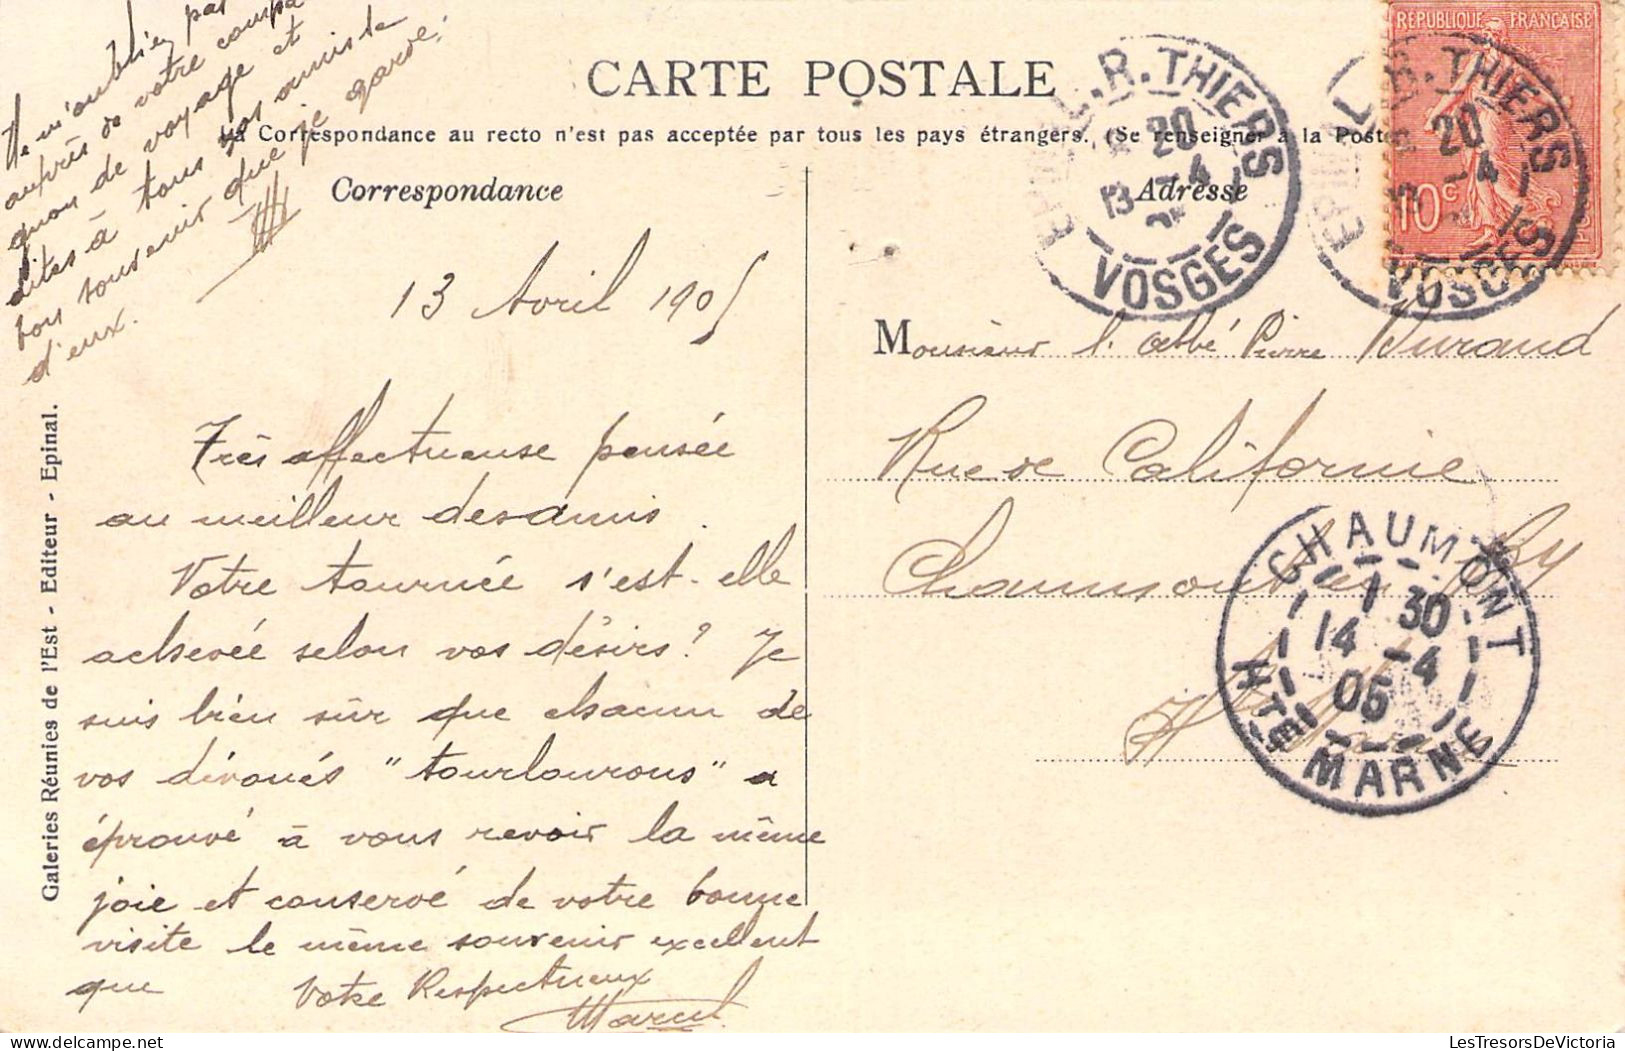 CARTE POSTALE
La Correspondance au recto n'est pas acceptée par tous les pays étrangers. (Se renseigner à la Poste
Correspondance
Adresse
RÉPUBLIQUE FRANÇAISE
10c
L.R. THIERS
20
13 -4
VOSGES
L.R. THIERS
20
-4
VOSGES
13 Avril 1905
Très affectueuse pensée
au meilleur des amis.
Votre tournée s'est-elle
achevée selon vos désirs? Je
suis bien sûr que chacun de
vos dévoués "tourlourous" a
éprouvé à vous revoir la même
joie et conservé de votre bonne
visite le même souvenir excellent
que Votre Respectueux
Marcel
N'oubliez pas
auprès de votre compa
gnon de voyage et
dites à tous vos amis le
bon souvenir que je garde
d'eux.
Monsieur l'abbé Pierre Durand
Rue de Californie
Chaumont en By
Hte Marne
CHAUMONT
1 30
14 -4
05
HTE MARNE
Galeries Réunies de l'Est - Editeur - Epinal.
LesTresorsDeVictoria